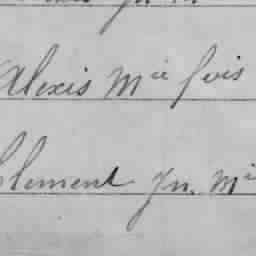 Alexis Mie fois
Clement Jn. Mie